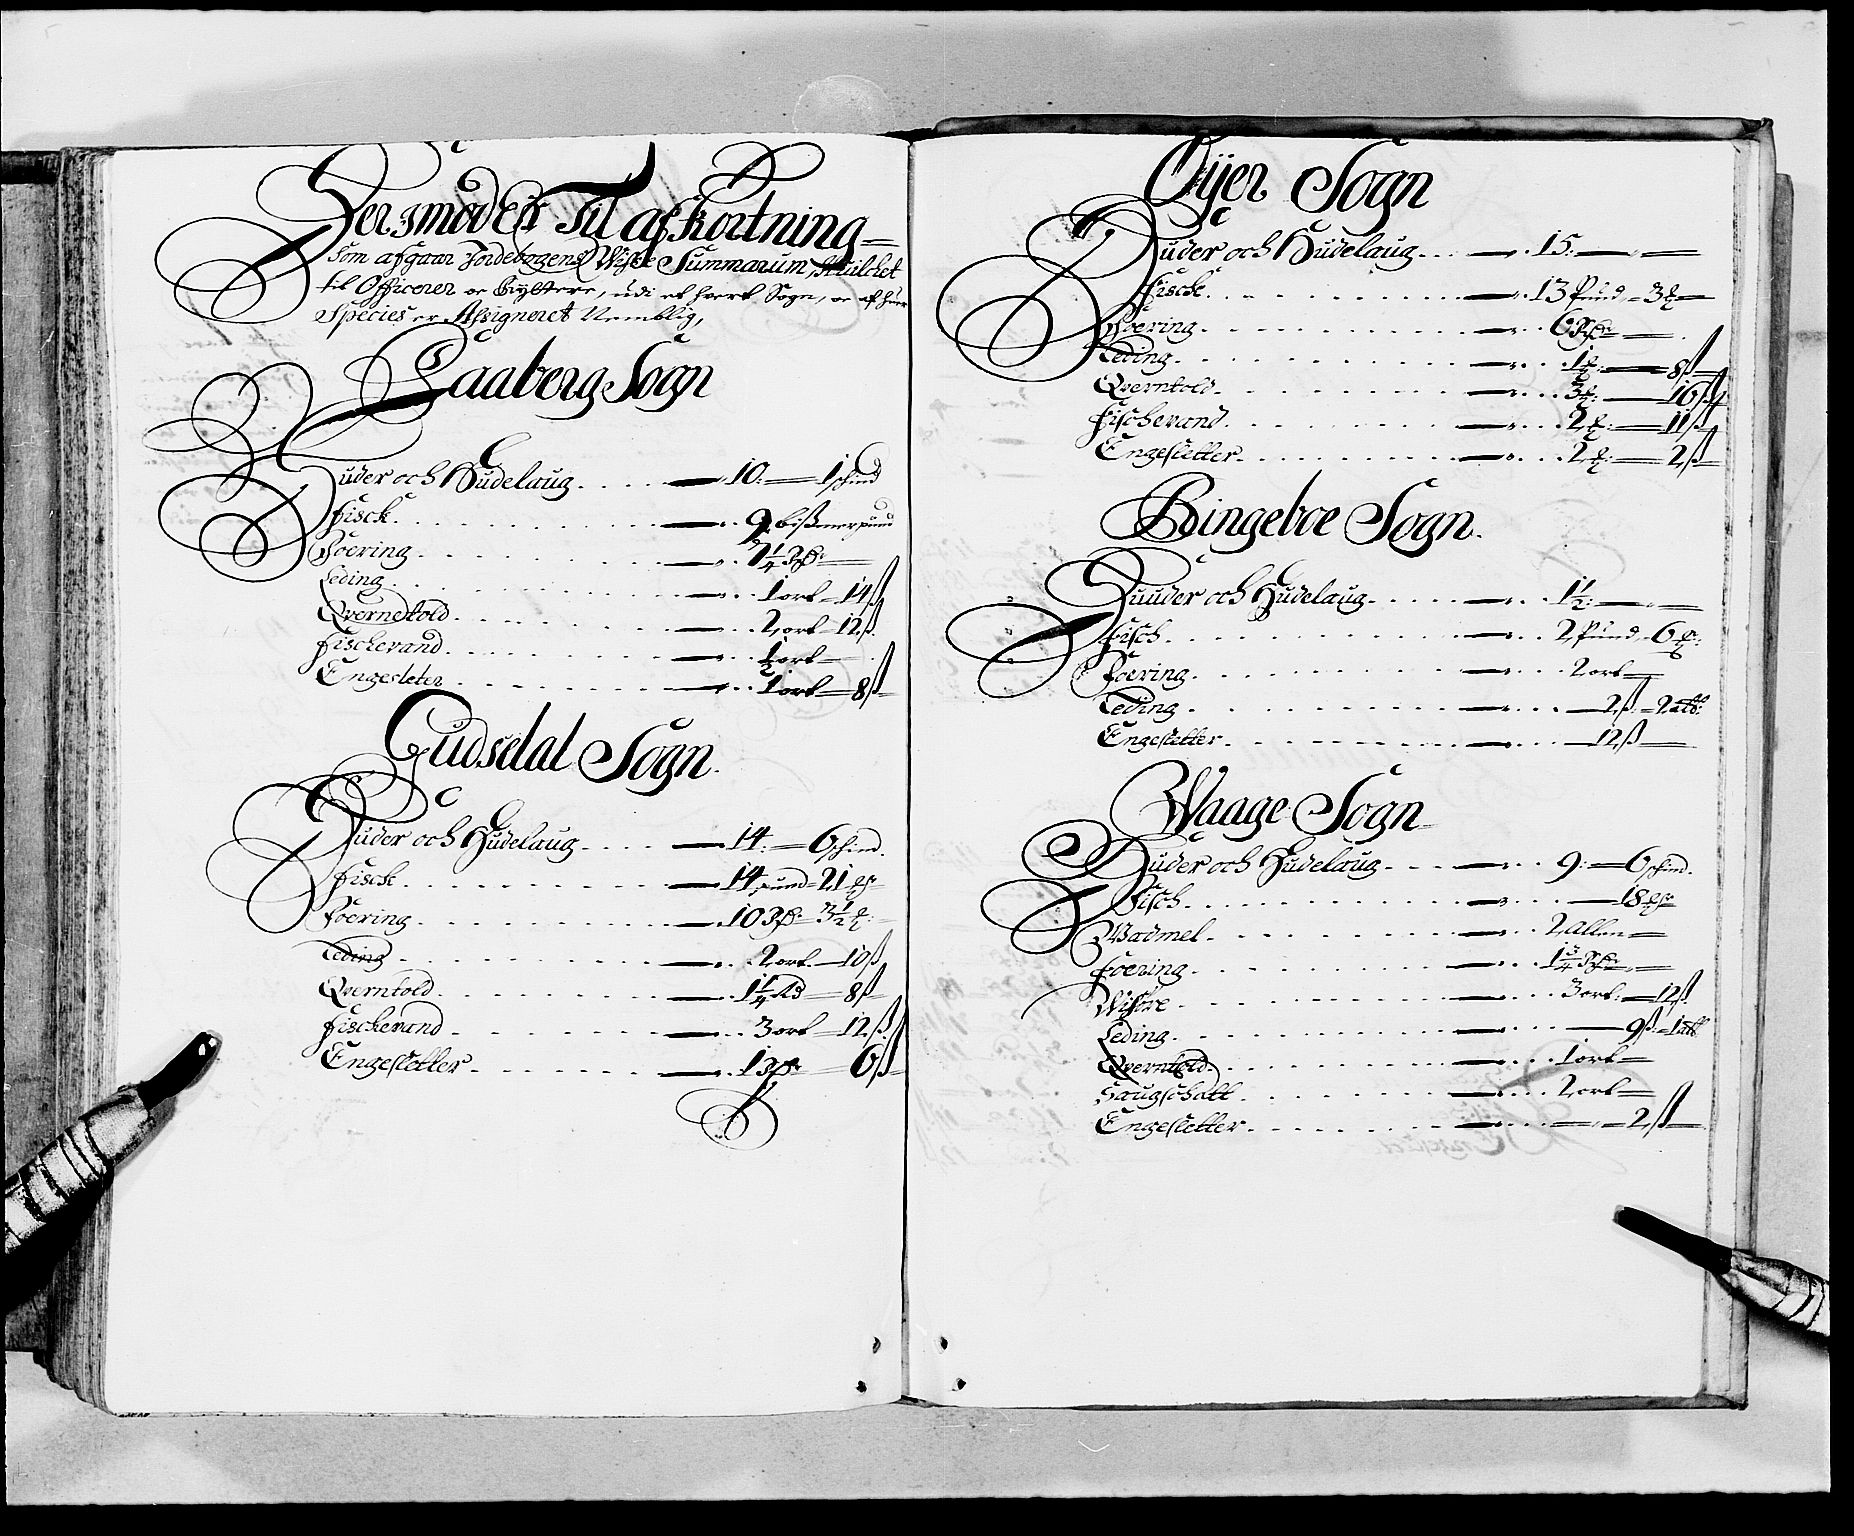 Der imod Er Til afkortning
Som afgaar Jordebogens Wiste Summarum, Huilchet
til Officerer oc Ryttere, udi et hvert Sogn, oc af huer
Species er Assigneret Nemblig,
Faaberg Sogn
Huder och Hudelaug 10: 1 schind
Fisck 9 bißmerpund
Foering 7 1/4 Rdr
Leding 1 ort 14 ß
Qverndtold 2 ort 12 ß
Fischevand 1/2 ort
Engesleter 1 ort 8 ß
Gudsdal Sogn.
Huder och Hudelaug 14: 6 schind.
Fisck 14 pund 21
Foering 10 Rdr 3 1/2
Leding 2 ort 10 ß
Qverntold 1 1/4 Rd 8 ß
Fischevand 3 ort 12 ß
Engesletter 1 Rdr 6 ß
Öyer Sogn
Huder och Hudelaug 15
Fisck 13 Pund 3
Foering 6 Rdr
Leding 1 8 ß
Qverntold 3 16 ß
Fischevand 2 11 ß
Engesletter 2 2 ß
Ringeboe Sogn.
Huuder och Hudelaug 1 1/2
Fisch 2 Pund 6
Foering 2 ort
Leding 2 ß 2 alb:
Engesletter 12 ß
Waage Sogn
Huder och Hudelaug 9: 6 schind.
Fisch 18
Wadmel 2 Allen
Foering 1 3/4 Rdr
Wissøre 3 ort: 12 ß
Leding 9 ß: 1 alb
Qverntold 1 ort
Saugschatt 2 ort
Engesletter 2 ß